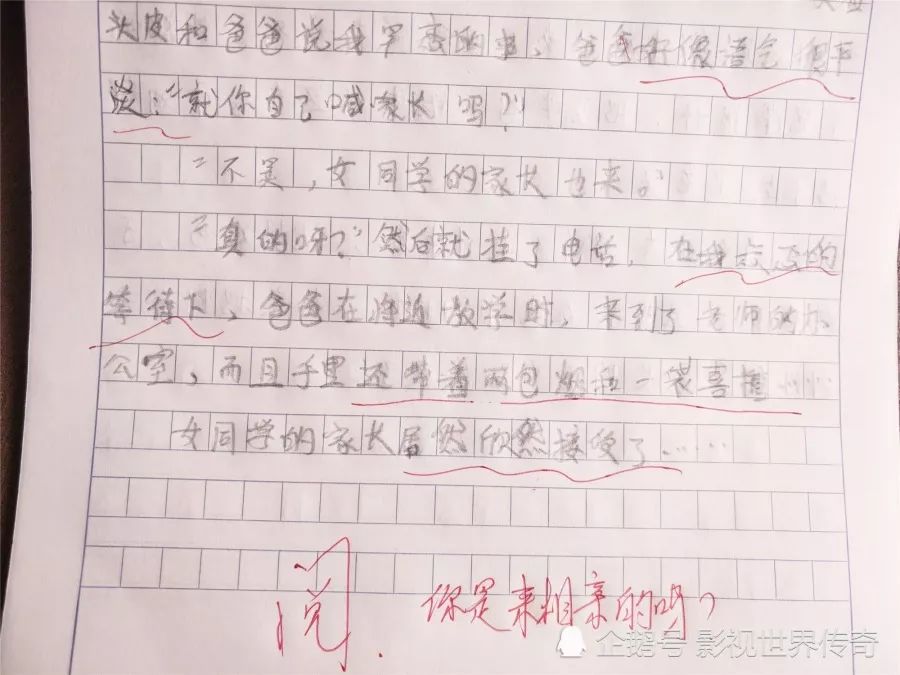 头皮和爸爸说我早恋的事，爸爸好像语气很平
淡："就你自己喊家长吗？"
"不是，女同学的家长也来。"
"真的呀？"然后就挂了电话，在我忐忑的
等待下，爸爸在将近放学时，来到了老师的办
公室，而且手里还带着两包烟和一袋喜糖……
女同学的家长居然欣然接受了……
阅. 你是来相亲的吗？
企鹅号 影视世界传奇